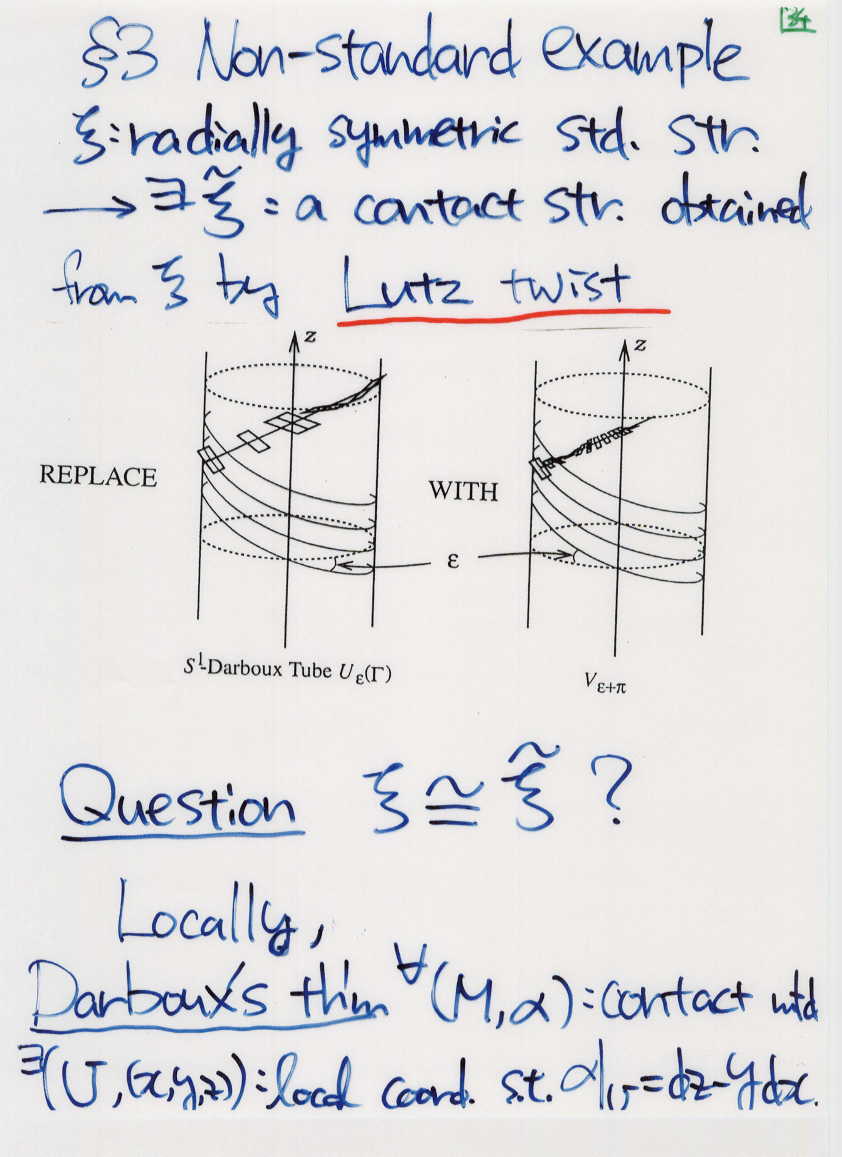 §3 Non-standard example
ξ:radially symmetric std. str.
→ ∃ξ̃ : a contact str. obtained
from ξ by Lutz twist
z
z
REPLACE
WITH
ε
S¹-Darboux Tube Uε(Γ)
Vε+π
Question ξ ≅ ξ̃ ?
Locally,
Darboux's thm ∀(M,α):contact mfd
∃(U,(x,y,z)):local coord. s.t. α|U=dz-ydx.